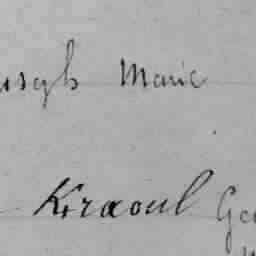 useph Marie
Kraoul